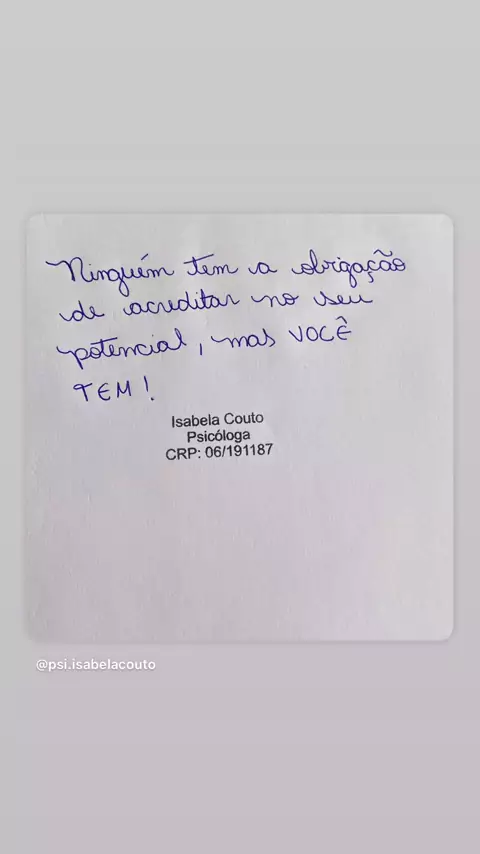 Ninguém tem a obrigação
de acreditar no seu
potencial, mas VOCÊ
TEM!
Isabela Couto
Psicóloga
CRP: 06/191187
@psi.isabelacouto